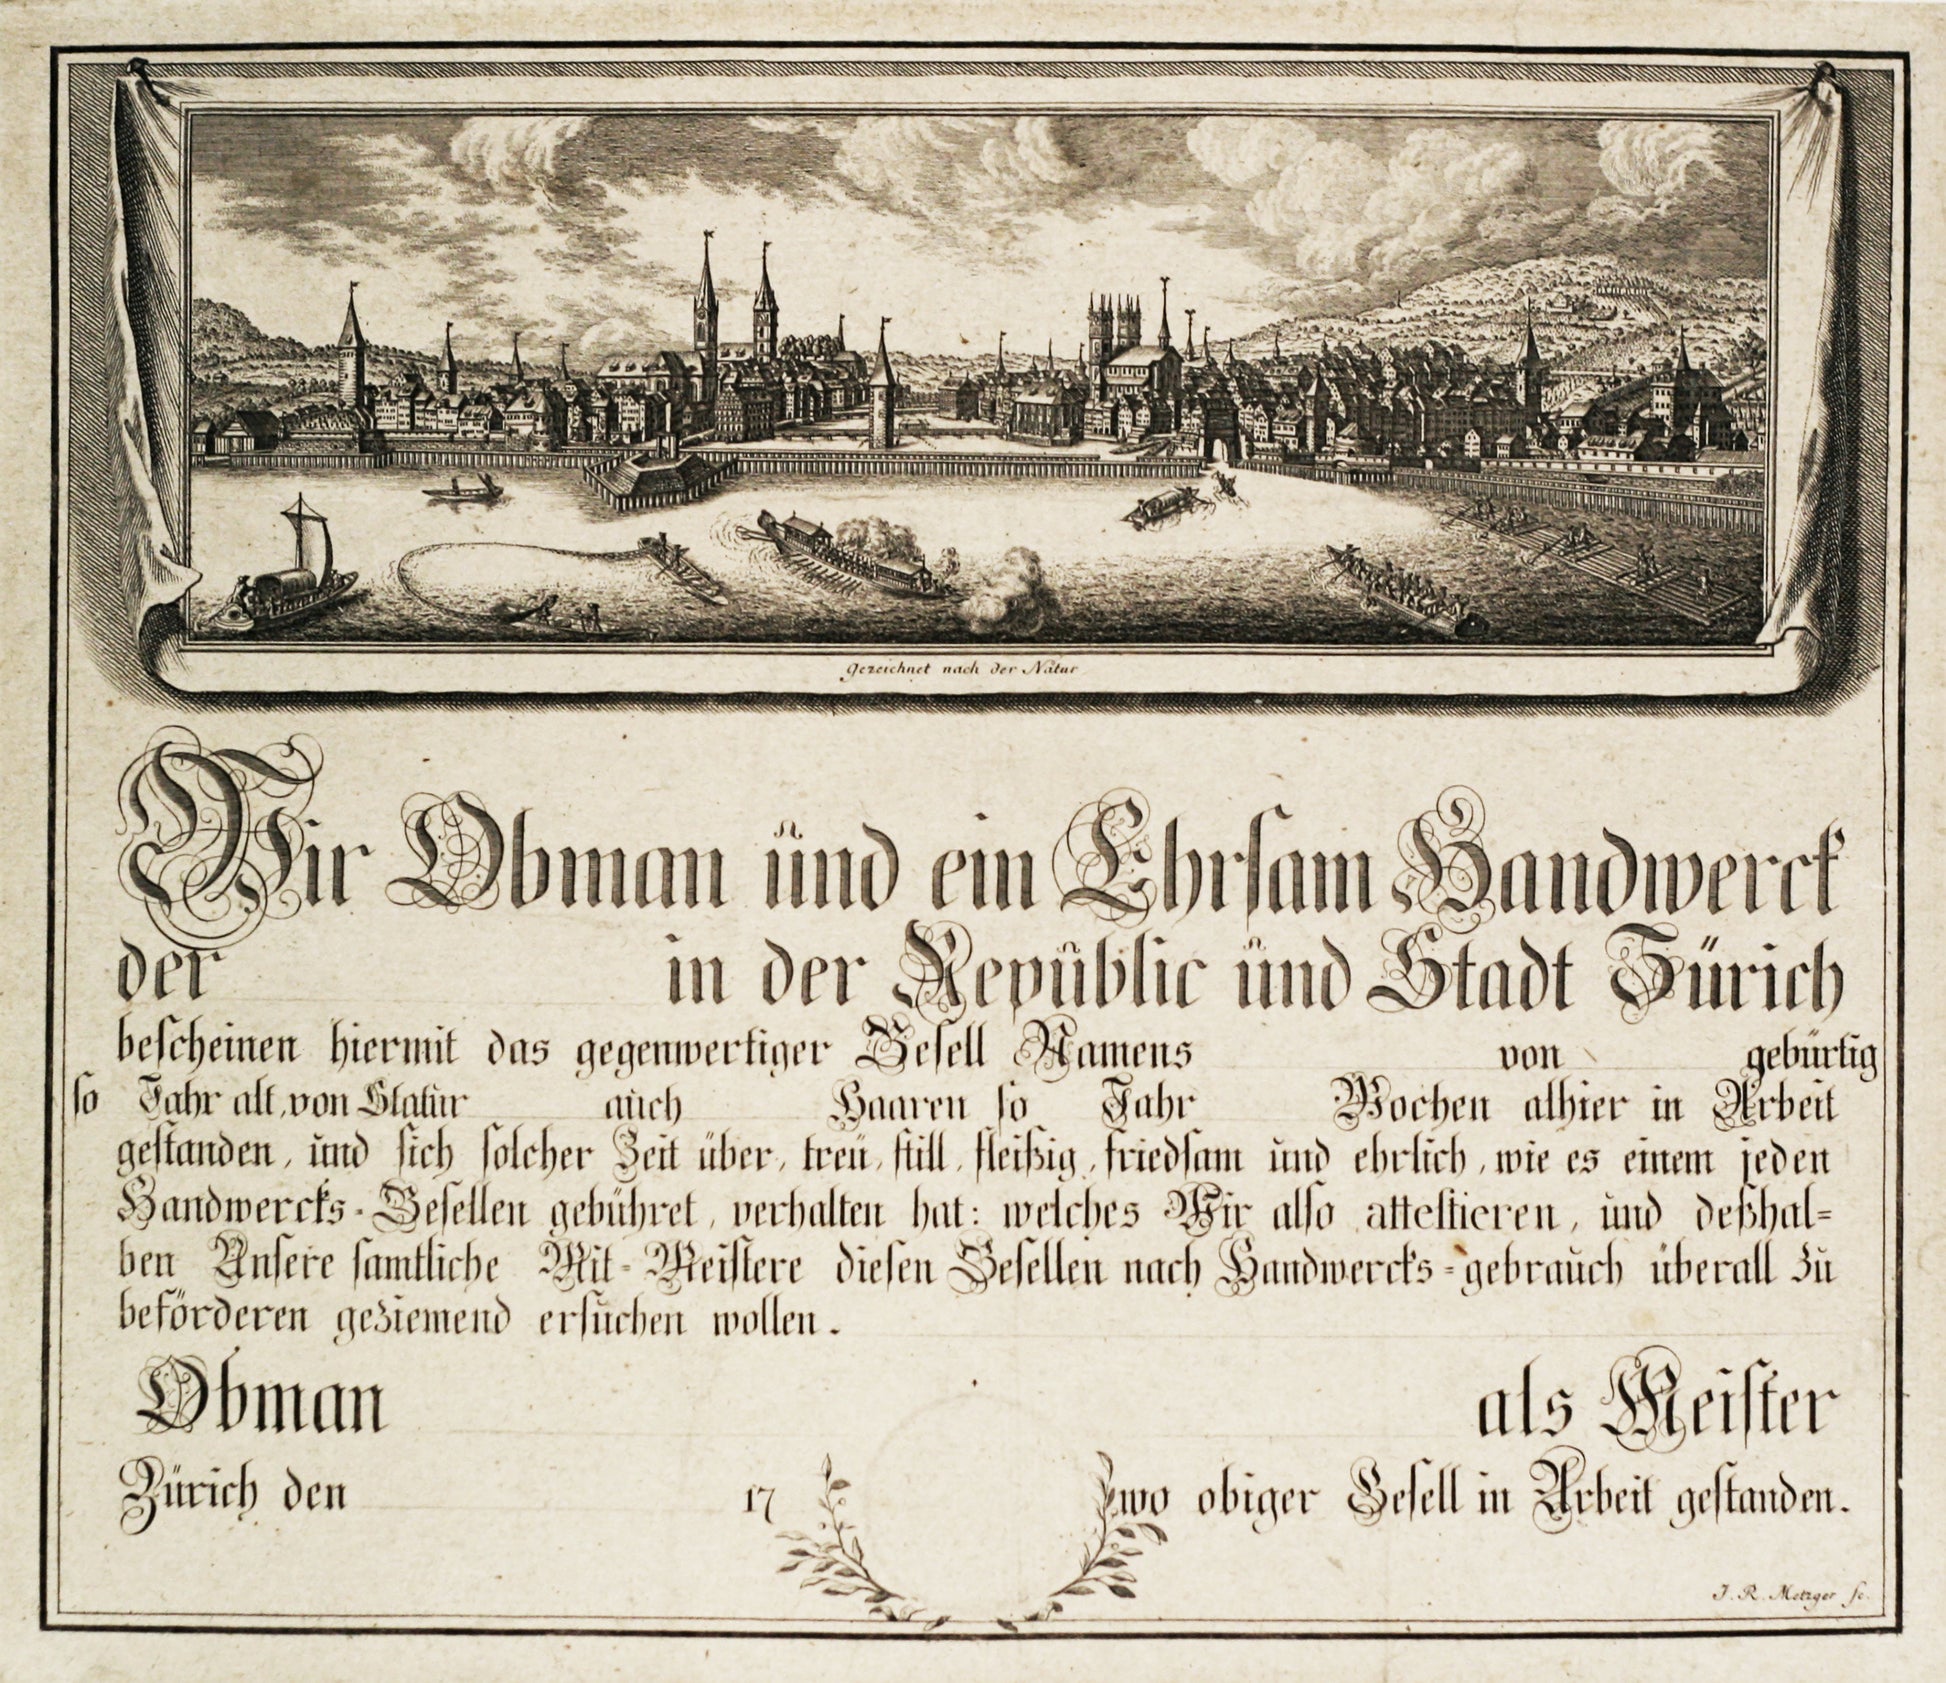 Gezeichnet nach der Natur
Wir Obman und ein Ehrsam Handwerck
der in der Republic und Stadt Zürich
bescheinen hiermit das gegenwertiger Gesell Namens von gebürtig
so Jahr alt, von Statur auch Haaren so Jahr Wochen alhier in Arbeit
gestanden, und sich solcher Zeit über, treu, still, fleißig, friedsam und ehrlich, wie es einem jeden
Handwercks-Gesellen gebühret, verhalten hat: welches Wir also attestieren, und deßhal=
ben Unsere samtliche Mit-Meistere diesen Gesellen nach Handwercks=gebrauch überall zu
beförderen geziemend ersuchen wollen.
Obman als Meister
Zürich den 17 wo obiger Gesell in Arbeit gestanden.
J. R. Metzger sc.